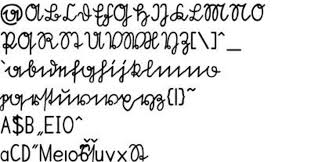 @ABCDEFGHIJKLMNO
PQRSTUVWXYZ[\]^_
`abcdefghijklmno
pqrstuvwxyz{|}~
A$B„EIO^
aCD”Meıo uvx